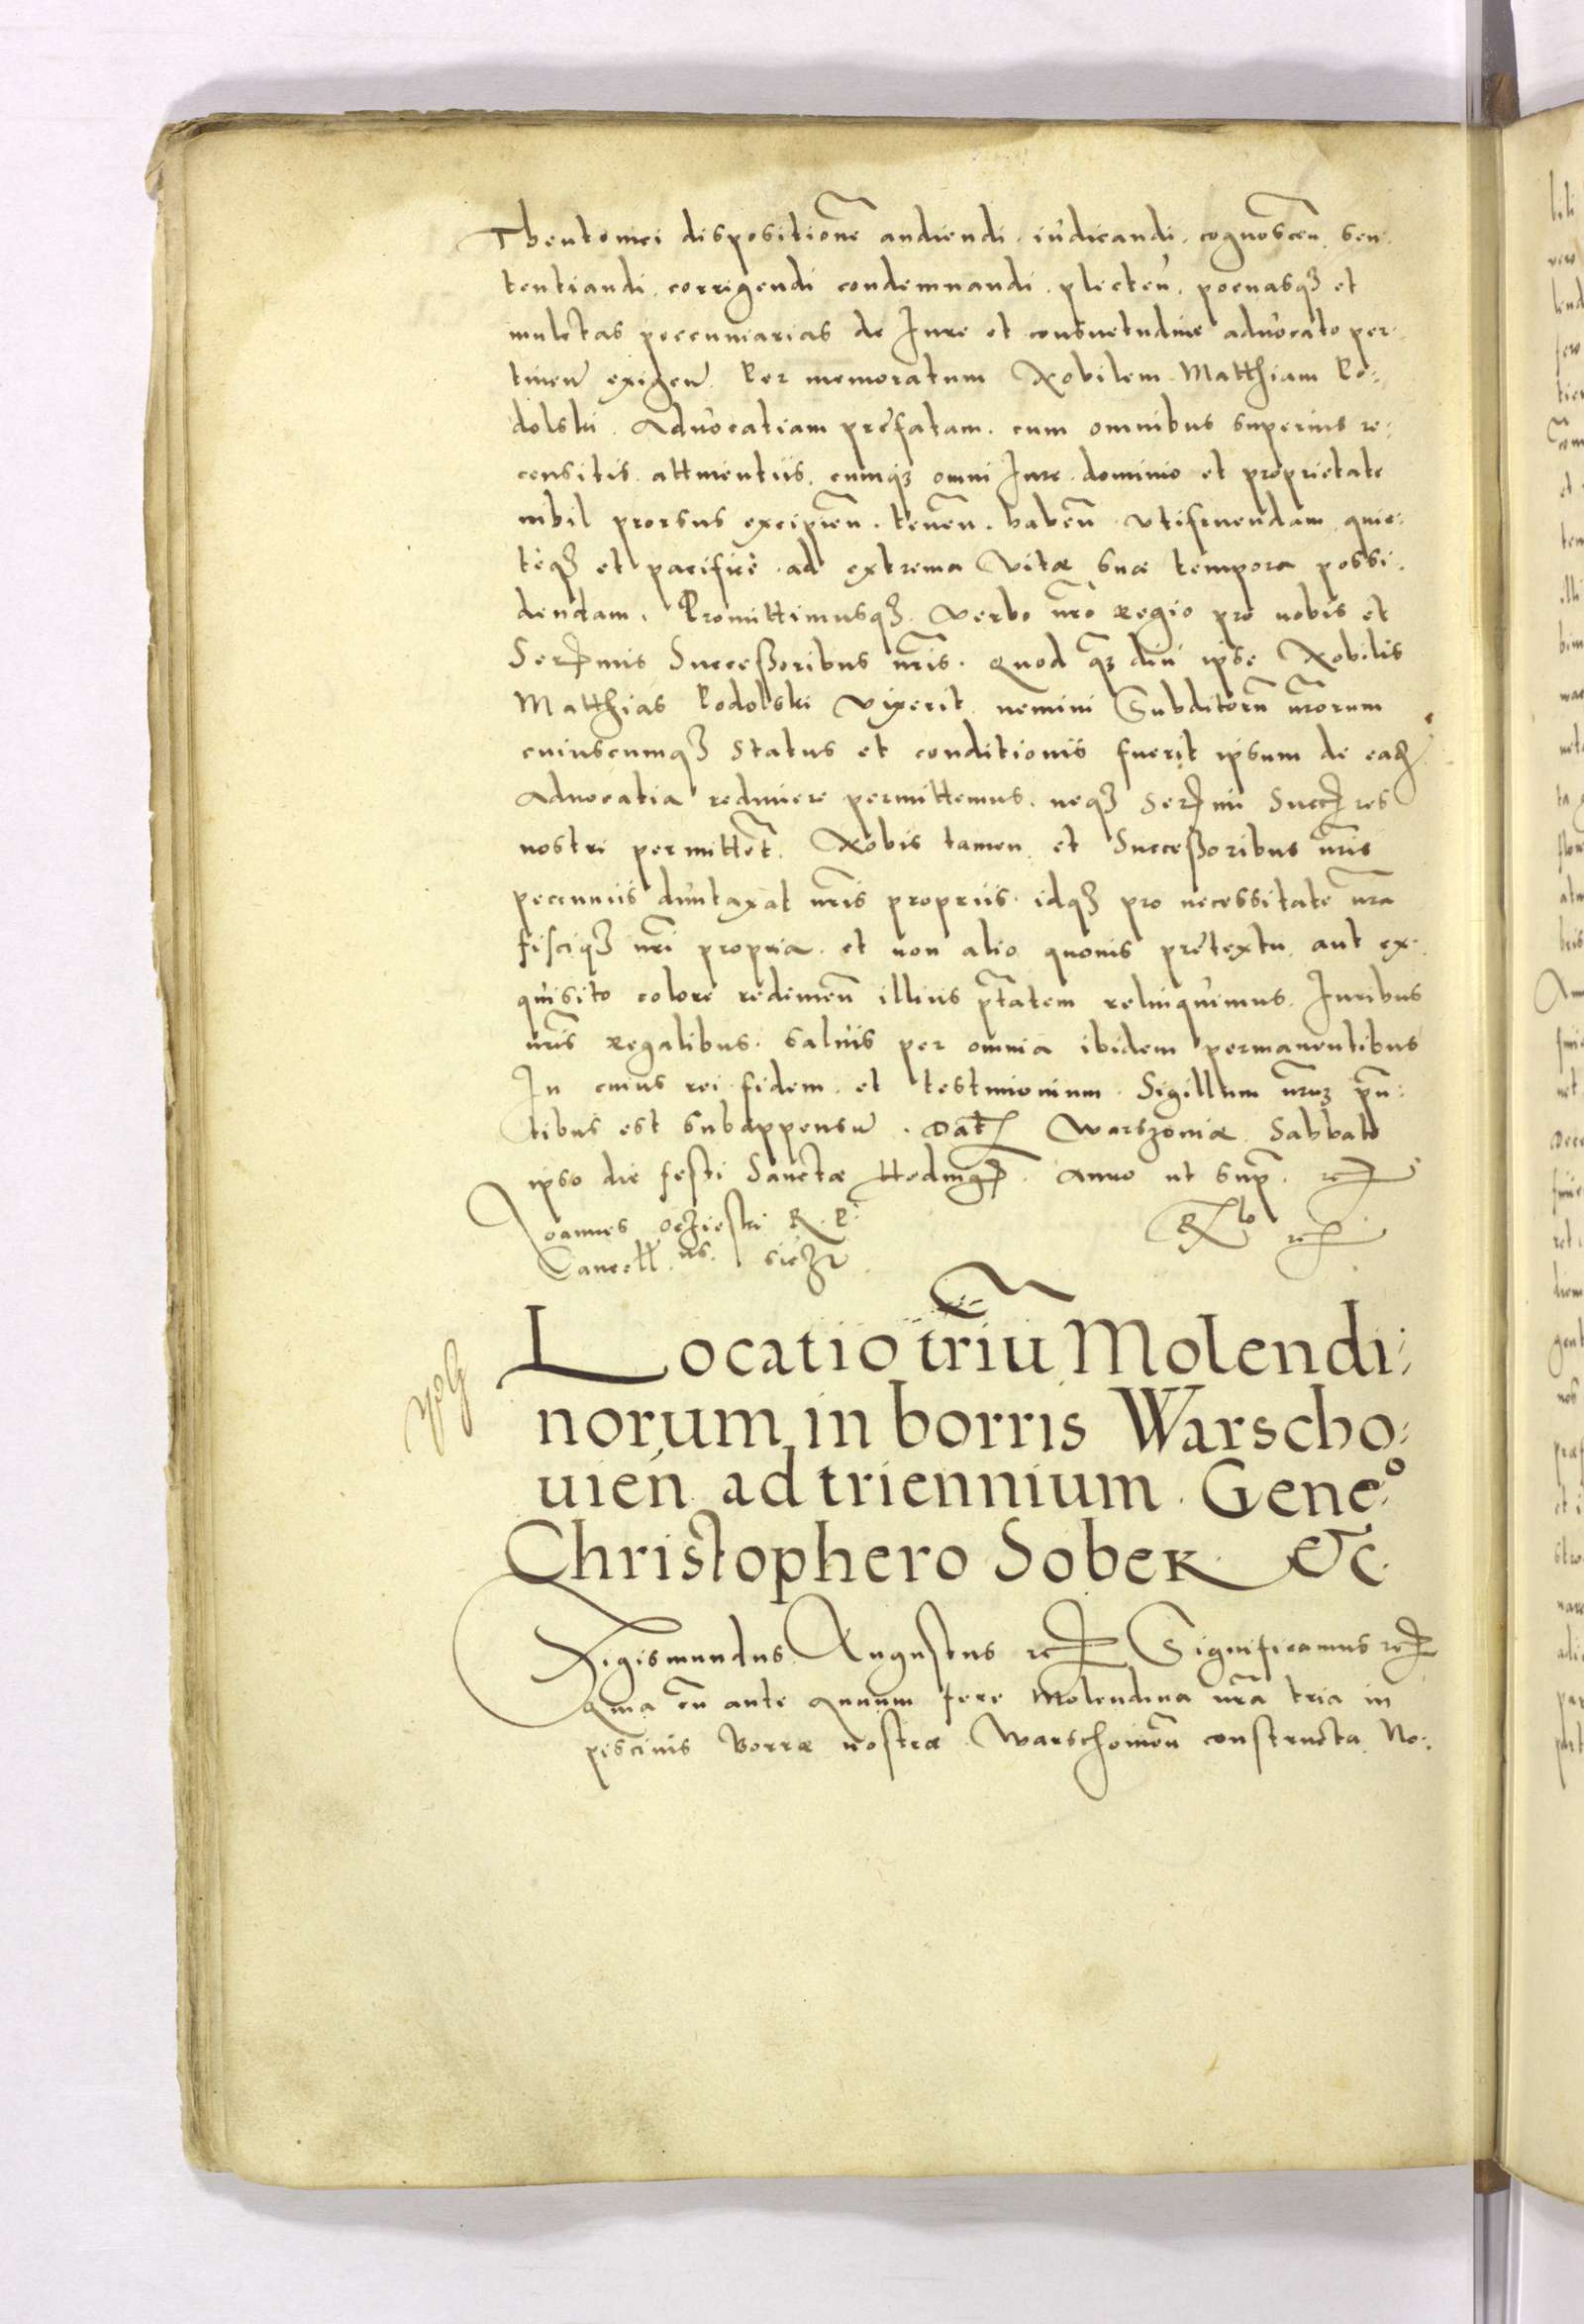 Theutonici dispositione audiendi. iudicandi. cognoscen. sen-
tentiandi. corrigendi condemnandi. plecten. poenasq3 et
mulctas peccuniarias de Jure et consuetudine aduocato per-
tinen exigen. Per memoratum Nobilem Matthiam Po-
dolski. Aduocatiam prefatam. cum omnibus superius re-
censitis attinentiis. cumq3 omni Jure. dominio et proprietate
nihil prorsus excipien. tenen. haben. vtifruendam quie-
teq3 et pacifice. ad extrema vitæ suæ tempora possi-
dendam. Promittimusq3. verbo nro Regio pro nobis et
Sermis Successoribus nris. Quod q3 diu ipse Nobilis
Matthias Podolski vixerit. nemini Subditoru nrorum
cuiuscumq3 status et conditionis fuerit ipsum de ead
Aduocatia redimere permittemus. neq3 Sermi Succres
nostri permittet. Nobis tamen et Successoribus nris
peccuniis duntaxat nris propriis. idq3 pro necessitate nra
fisciq3 nri propria. et non alio quouis pretextu aut ex-
quisito colore redimen illius ptatem relinquimus. Juribus
nris Regalibus. saluis per omnia ibidem permanentibus
In cuius rei fidem et testimonium. Sigillum nru3 pn-
tibus est subappensu. Dat Warszouiæ Sabbato
ipso die festi Sanctæ Heduig. Anno ut sup. etc
Joannes Oczieski R. P.
Cancell us. sszt
Locatio triu Molendi-
norum in borris Warscho-
uien ad triennium. Gene.o
Christophero Sobek etc.
Sigismundus Augustus etc Significamus etc
Quia cu ante annum fere Molendina nra tria in
piscinis Borræ nostræ Warschouien constructa No-